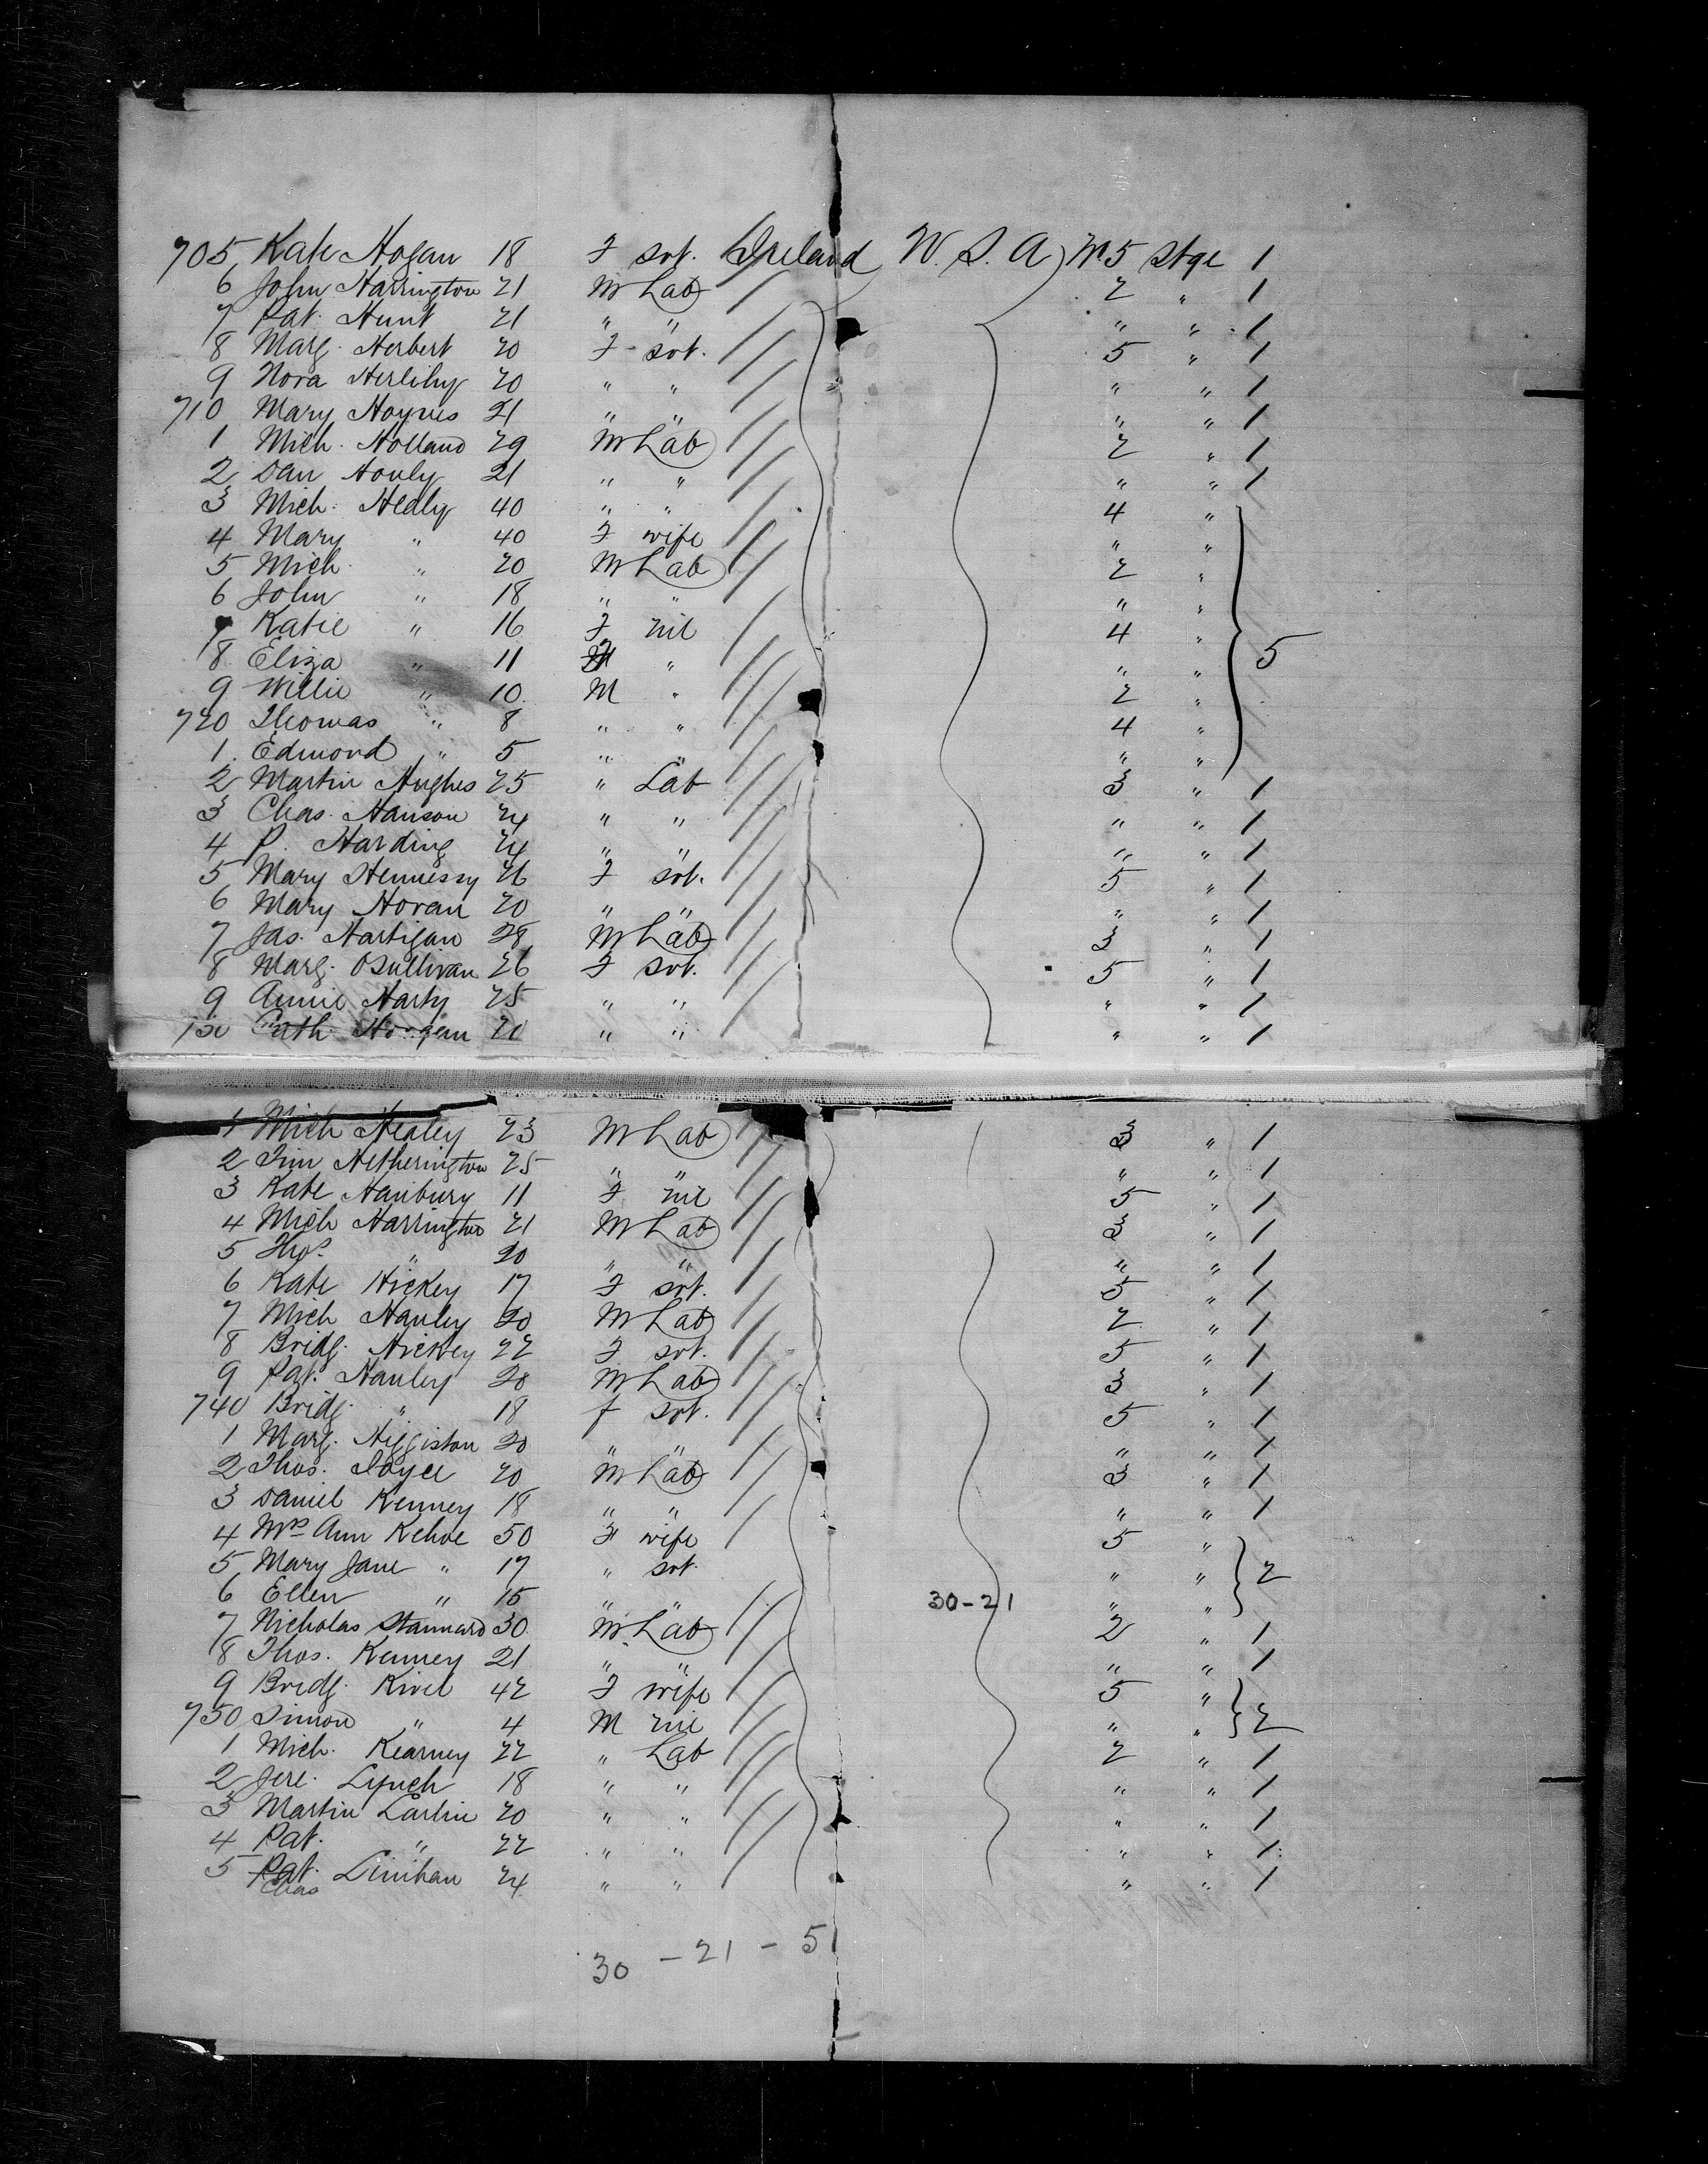 705 Kate Hogan 18 F svt. Ireland U.S.A No 5 Stge 1
6 John Harrington 21 M Lab 2 " 1
7 Pat. Hunt 21 " " " " 1
8 Marg. Herbert 20 F svt. 5 " 1
9 Nora Herlihy 20 " " " " 1
710 Mary Haynes 21 " " " " 1
1 Mich. Holland 29 M Lab 2 " 1
2 Dan 21 " " " " 1
3 Mich. Healy 40 " " 4 "
4 Mary " 40 F wife " "
5 Mich. " 20 M Lab 2 "
6 John " 18 " " " "
7 Katie " 16 F nil 4 "
8 Eliza " 11 F " " " 5
9 Willie " 10 M " 2 "
720 Thomas " 8 " " 4 "
1 Edmond " 5 " " " "
2 Martin Hughes 25 " Lab 3 " 1
3 Chas. Hanson 24 " " " " 1
4 P. Harding 24 " " " " 1
5 Mary Hennessy 26 F svt. 5 " 1
6 Mary Horan 20 " " " " 1
7 Jas. Hartigan 28 M Lab 3 " 1
8 Marg. OSullivan 26 F svt. 5 " 1
9 Annie Harty 25 " " " " 1
730 Cath Hoogan 20 " " " " 1
1 Mich Healey 23 M Lab 3 " 1
2 Tim Hetherington 25 " " " " 1
3 Kate Hanbury 11 F nil 5 " 1
4 Mich Harrington 21 M Lab 3 " 1
5 Thos. " 20 " " " " 1
6 Kate Hickey 17 F svt. 5 " 1
7 Mich Hanley 20 M Lab 2 " 1
8 Bridg. Hickey 22 F svt. 5 " 1
9 Pat. Hanley 20 M Lab 3 " 1
740 Bridg. " 18 f svt. 5 " 1
1 Marg. Higgiston 20 " " " " 1
2 Thos. Joyce 20 M Lab 3 " 1
3 Daniel Kenney 18 " " " " 1
4 Mrs Ann Kehoe 50 F wife 5 "
5 Mary Jane " 17 " svt. " " 2
6 Ellen " 15 " " 30-21 " "
7 Nicholas Stannard 30 M Lab 2 " 1
8 Thos. Kenney 21 " " " " 1
9 Bridg. 42 F wife 5 "
750 Simon " 4 M nil " " 2
1 Mich. Kearney 22 " Lab 2 " 1
2 Jere. Lynch 18 " " " " 1
3 Martin Larkin 20 " " " " 1
4 Pat. " 22 " " " " 1
5 Pat. Linihan 24 " " " " 1
Chas
30 - 21 - 51